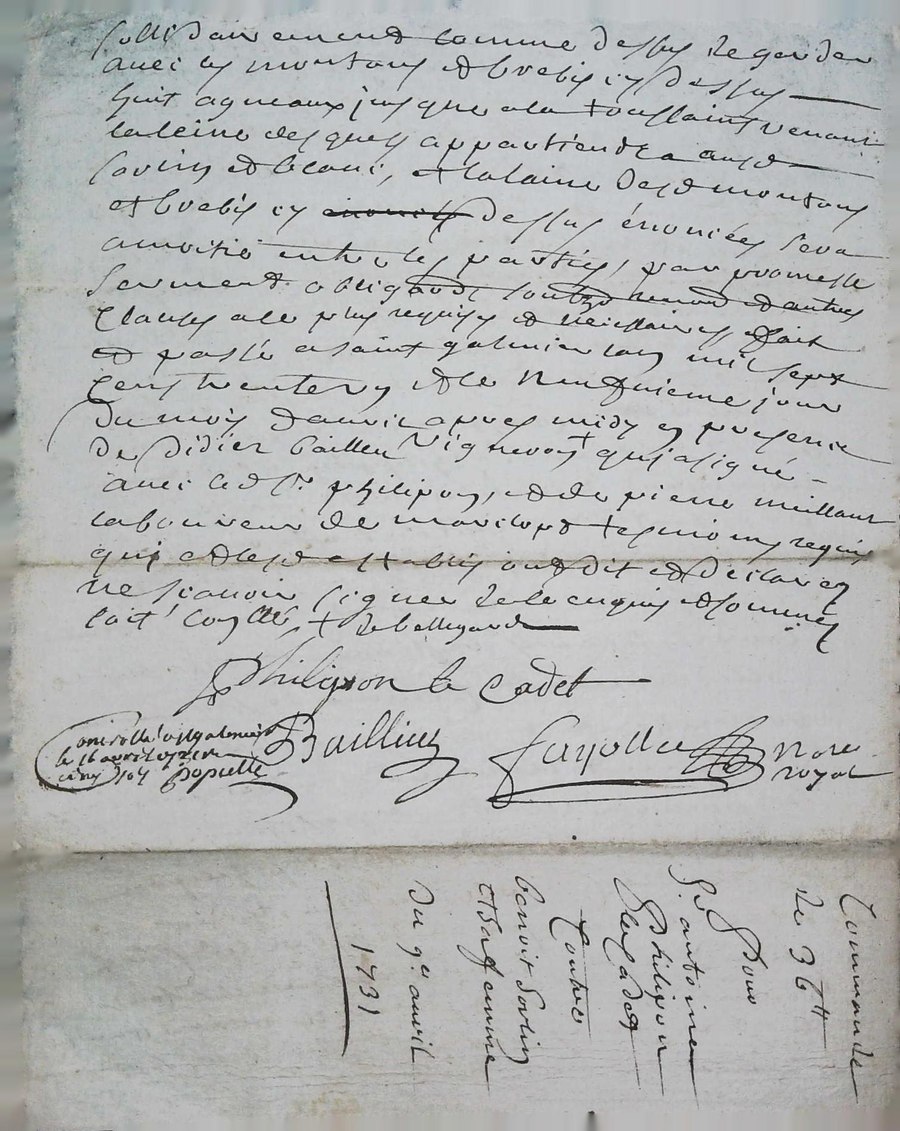 sollidairement comme dessus de garder
avec les moutons et brebis cy dessus
huit agneaux jusque a la toussaint venant
la leine desquels appartiendra aud
sorin et blanc, et la laine desd moutons
et brebis cy dessus énoncées sera
a moitié entre les parties, par promesse
serment obligaõns soubz renond et autres
clauses a le plus requises et necessaires fait
et passé a saint galmier lan mil sept
cens trente un et le neufvieme jour
du mois d'avril apres midy en presence
de Didier Bailleu vigneron + qui a signé
avec led sr philipon, et de pierre meillant
laboureur de marclopt tesmoins requis
qui et lesd establis ont dit et declaré
ne scavoir signer de ce enquis et sommés
+ de bellegarde
Philipon le Cadet
Controllé a St galmier
le 16 avril 1731
Baillieu
fayolle Nore
royal
Commande
de 36 tt
Pour
Sr antoine
Philipon
le cadet
Contre
benoit Sorin
et sa femme
Du 9e avril
1731